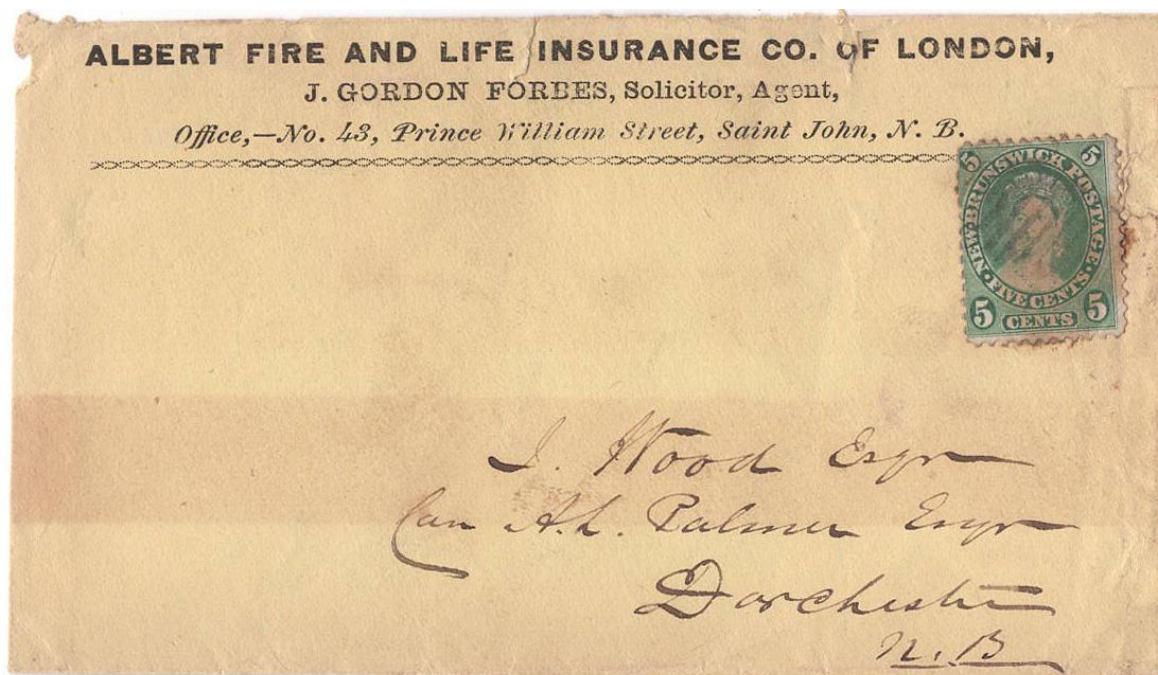 ALBERT FIRE AND LIFE INSURANCE CO. OF LONDON,
J. GORDON FORBES, Solicitor, Agent,
Office,—No. 43, Prince William Street, Saint John, N. B.
5 5
NEW BRUNSWICK POSTAGE
FIVE CENTS
5 CENTS 5
J. Wood Esqr
Care A. L. Palmer Esqr
Dorchester
N. B